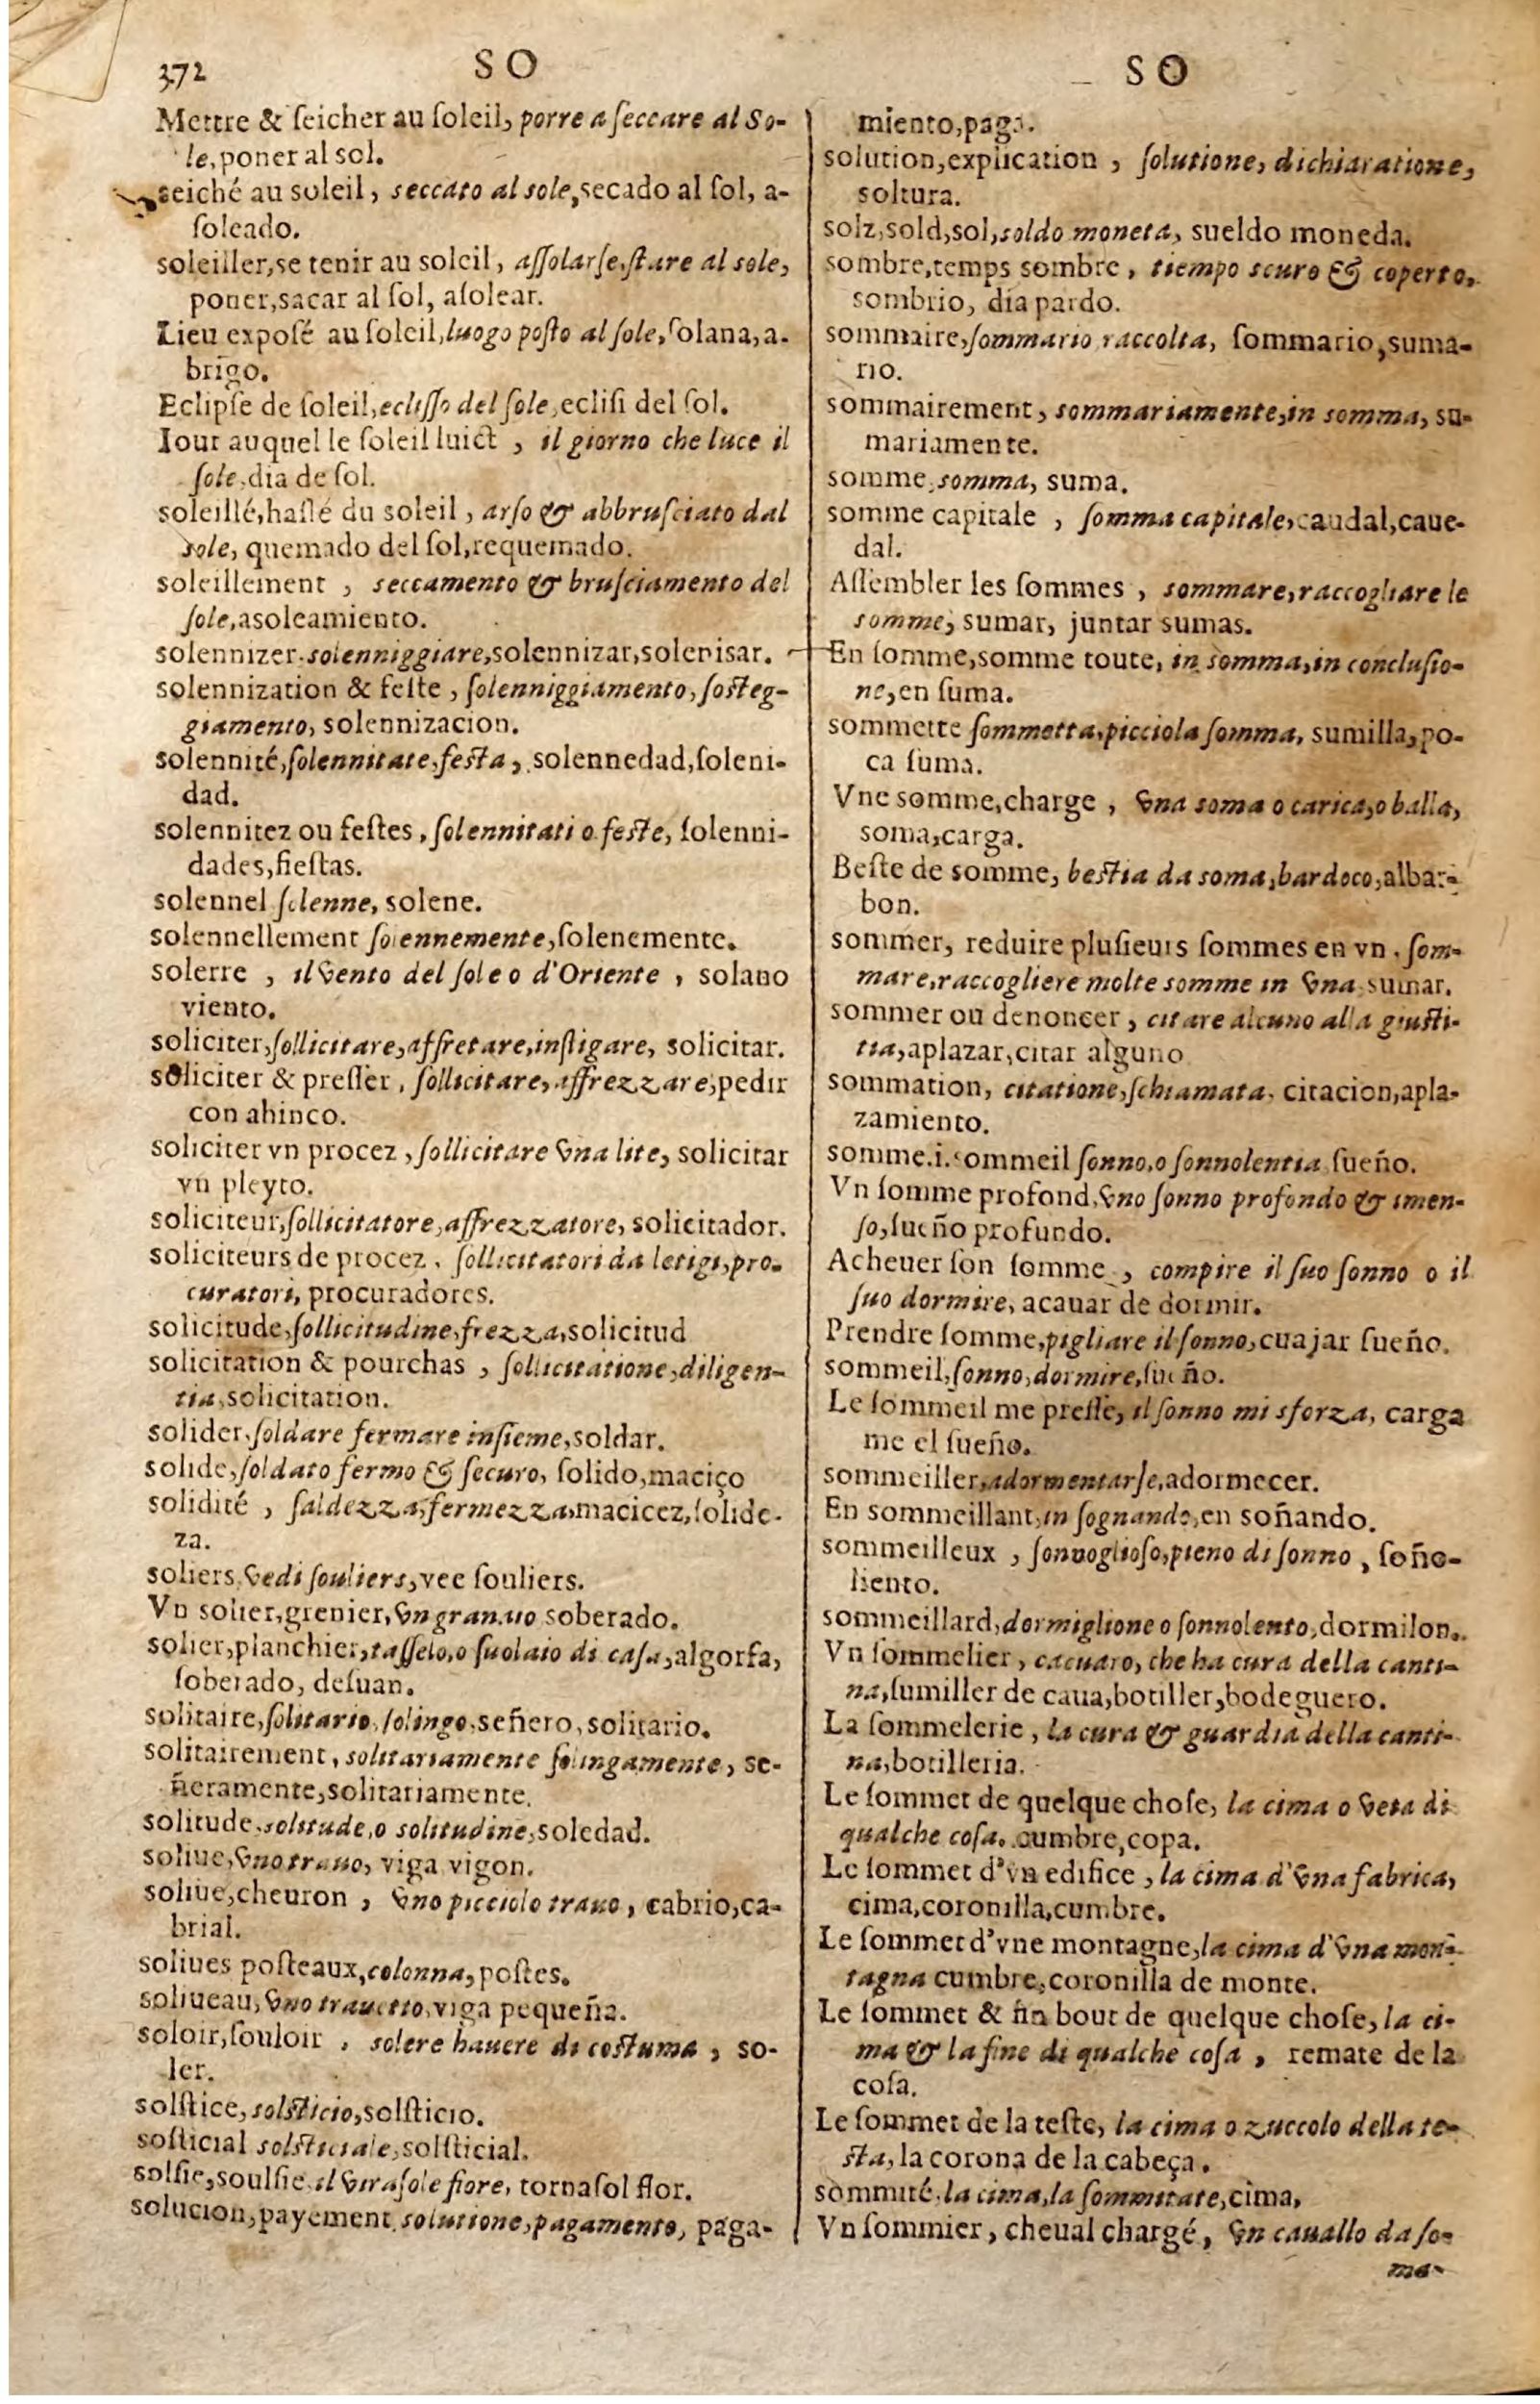 372
SO
SO
Mettre & ſeicher au ſoleil, porre a ſeccare al So-
le, poner al sol.
seiché au soleil, seccato al sole, secado al ſol, a-
ſoleado.
soleiller, se tenir au soleil, aſſolarſe, ſtare al sole,
poner, sacar al ſol, aſolear.
Lieu expoſé au ſoleil, luogo poſto al ſole, ſolana, a-
brigo.
Eclipſe de ſoleil, ecliſſo del ſole, ecliſi del ſol.
Iour auquel le ſoleil luict, il giorno che luce il
ſole, dia de ſol.
soleillé, haſlé du soleil, arſo & abbruſciato dal
sole, quemado del ſol, requemado.
soleillement, seccamento & bruſciamento del
ſole, asoleamiento.
solennizer, solenniggiare, solennizar, solenisar.
solennization & feſte, ſolenniggiamento, ſoſteg-
giamento, solennizacion.
solennité, ſolennitate, feſta, solennedad, ſoleni-
dad.
solennitez ou feſtes, ſolennitati o feſte, ſolenni-
dades, fieſtas.
solennel ſolenne, solene.
solennellement ſolennemente, ſolenemente.
solerre, il vento del ſole o d'Oriente, solano
viento.
soliciter, ſollicitare, affretare, inſtigare, solicitar.
soliciter & preſſer, ſollicitare, affrezzare, pedir
con ahinco.
soliciter vn procez, ſollicitare vna lite, solicitar
vn pleyto.
soliciteur, ſollicitatore, affrezzatore, solicitador.
soliciteurs de procez, ſollicitatori da letigi, pro-
curatori, procuradores.
solicitude, ſollicitudine, frezza, solicitud
solicitation & pourchas, ſollicitatione, diligen-
tia, solicitation.
solider, ſoldare fermare inſieme, soldar.
solide, ſoldato fermo & ſecuro, ſolido, maciço
solidité, ſaldezza, fermezza, macicez, ſolide-
za.
soliers, vedi ſouliers, vee ſouliers.
Vn solier, grenier, vn granauo soberado.
solier, planchier, taſſelo, o ſuolaio di caſa, algorfa,
ſoberado, deſuan.
solitaire, ſolitario, ſolingo, señero, solitario.
solitairement, solitariamente ſolingamente, se-
ñeramente, solitariamente.
solitude, solitude, o solitudine, soledad.
soliue, vno trauo, viga vigon.
soliue, cheuron, vno picciolo trauo, cabrio, ca-
brial.
soliues poſteaux, colonna, poſtes.
soliueau, vno trauetto, viga pequeña.
soloir, ſouloir, solere hauere di coſtuma, so-
ler.
solſtice, solſticio, solſticio.
soſticial solſticiale, solſticial.
solſie, soulſie, il viraſole fiore, tornaſol flor.
solucion, payement, solutione, pagamento, paga-
miento, paga.
solution, explication, ſolutione, dichiaratione,
soltura.
solz, sold, sol, soldo moneta, sueldo moneda.
sombre, temps sombre, tiempo scuro & coperto,
sombrio, dia pardo.
sommaire, ſommario raccolta, ſommario, suma-
rio.
sommairement, sommariamente, in somma, su-
mariamente.
somme, somma, suma.
somme capitale, ſomma capitale, caudal, caue-
dal.
Aſſembler les ſommes, sommare, raccogliare le
somme, sumar, juntar sumas.
En ſomme, somme toute, in somma, in concluſio-
ne, en ſuma.
sommette ſommetta, picciola ſomma, sumilla, po-
ca ſuma.
Vne somme, charge, vna soma o carica, o balla,
soma, carga.
Beſte de somme, beſtia da soma, bardoco, albar-
bon.
sommer, reduire pluſieurs ſommes en vn, ſom-
mare, raccogliere molte somme in vna, sumar.
sommer ou denoncer, citare alcuno alla giuſti-
tia, aplazar, citar alguno
sommation, citatione, ſchiamata, citacion, apla-
zamiento.
somme.i. sommeil ſonno, o ſonnolentia ſueño.
Vn ſomme profond, vno ſonno profondo & imen-
ſo, ſueño profundo.
Acheuer ſon ſomme, compire il ſuo ſonno o il
ſuo dormire, acauar de dormir.
Prendre ſomme, pigliare il ſonno, cuajar ſueño.
sommeil, ſonno, dormire, ſueño.
Le ſommeil me preſſe, il ſonno mi sforza, carga
me el ſueño.
sommeiller, adormentarſe, adormecer.
En sommeillant, in ſognando, en soñando.
sommeilleux, ſonnoglioſo, pieno di ſonno, ſoño-
liento.
sommeillard, dormiglione o ſonnolento, dormilon.
Vn ſommelier, cacuaro, che ha cura della canti-
na, ſumiller de caua, botiller, bodeguero.
La ſommelerie, la cura & guardia della canti-
na, botilleria.
Le ſommet de quelque choſe, la cima o veta di
qualche coſa, cumbre, copa.
Le ſommet d'vn edifice, la cima d'vna fabrica,
cima, coronilla, cumbre.
Le ſommet d'vne montagne, la cima d'vna mon-
tagna cumbre, coronilla de monte.
Le ſommet & fin bout de quelque choſe, la ci-
ma & la fine di qualche coſa, remate de la
coſa.
Le ſommet de la teſte, la cima o zuccolo della te-
ſta, la corona de la cabeça.
sommité, la cima, la ſommitate, cima,
Vn ſommier, cheual chargé, vn cauallo da ſo-
ma-